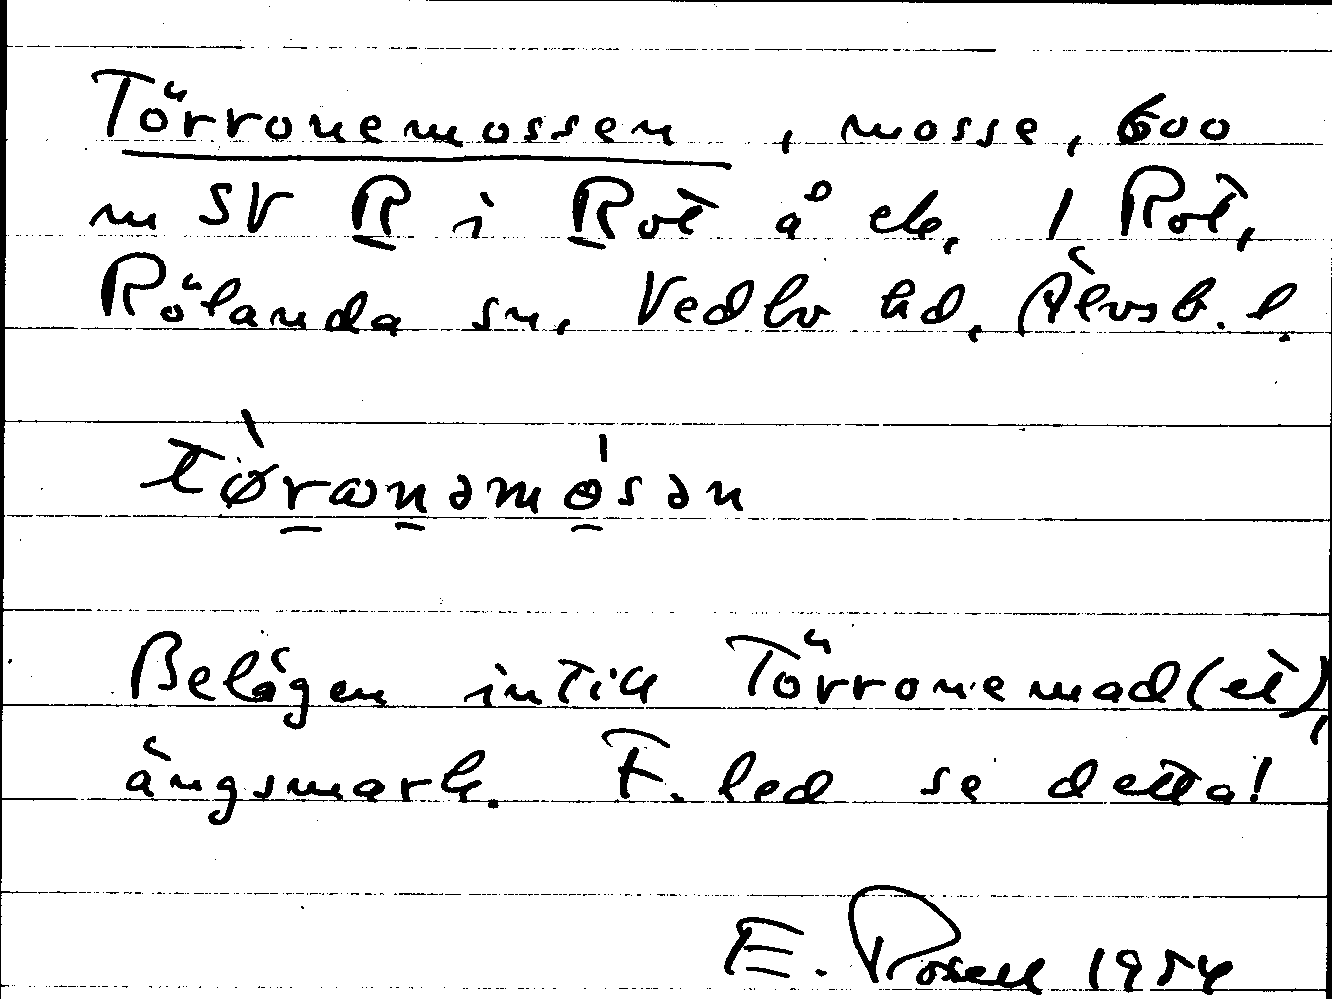 Törronemossen, mosse, 600
m SV R i Rot å ek. 1 Rot,
Rölanda sn, Vedbo hd, Älvsb. l.
tøranəmósən
Belägen intill Törronemad(et),
ängsmark. F. led se detta!
E. Rosell 1954